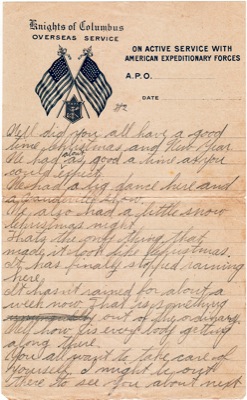 Knights of Columbus
OVERSEAS SERVICE
ON ACTIVE SERVICE WITH
AMERICAN EXPEDITIONARY FORCES
A.P.O.
DATE
Well did you all have a good
time Christmas and New Year.
We had about as good a time as you
could expect
We had a big dance here and
a show.
We also had a little snow
Christmas night.
Thats the only thing that
made it look like Christmas.
It has finally stopped raining
here.
It hasn't rained for about a
week now. That is something
out of the ordinary.
Well how is every body getting
along there.
You all want to take care of
yourself, I might be out
there to see you about next